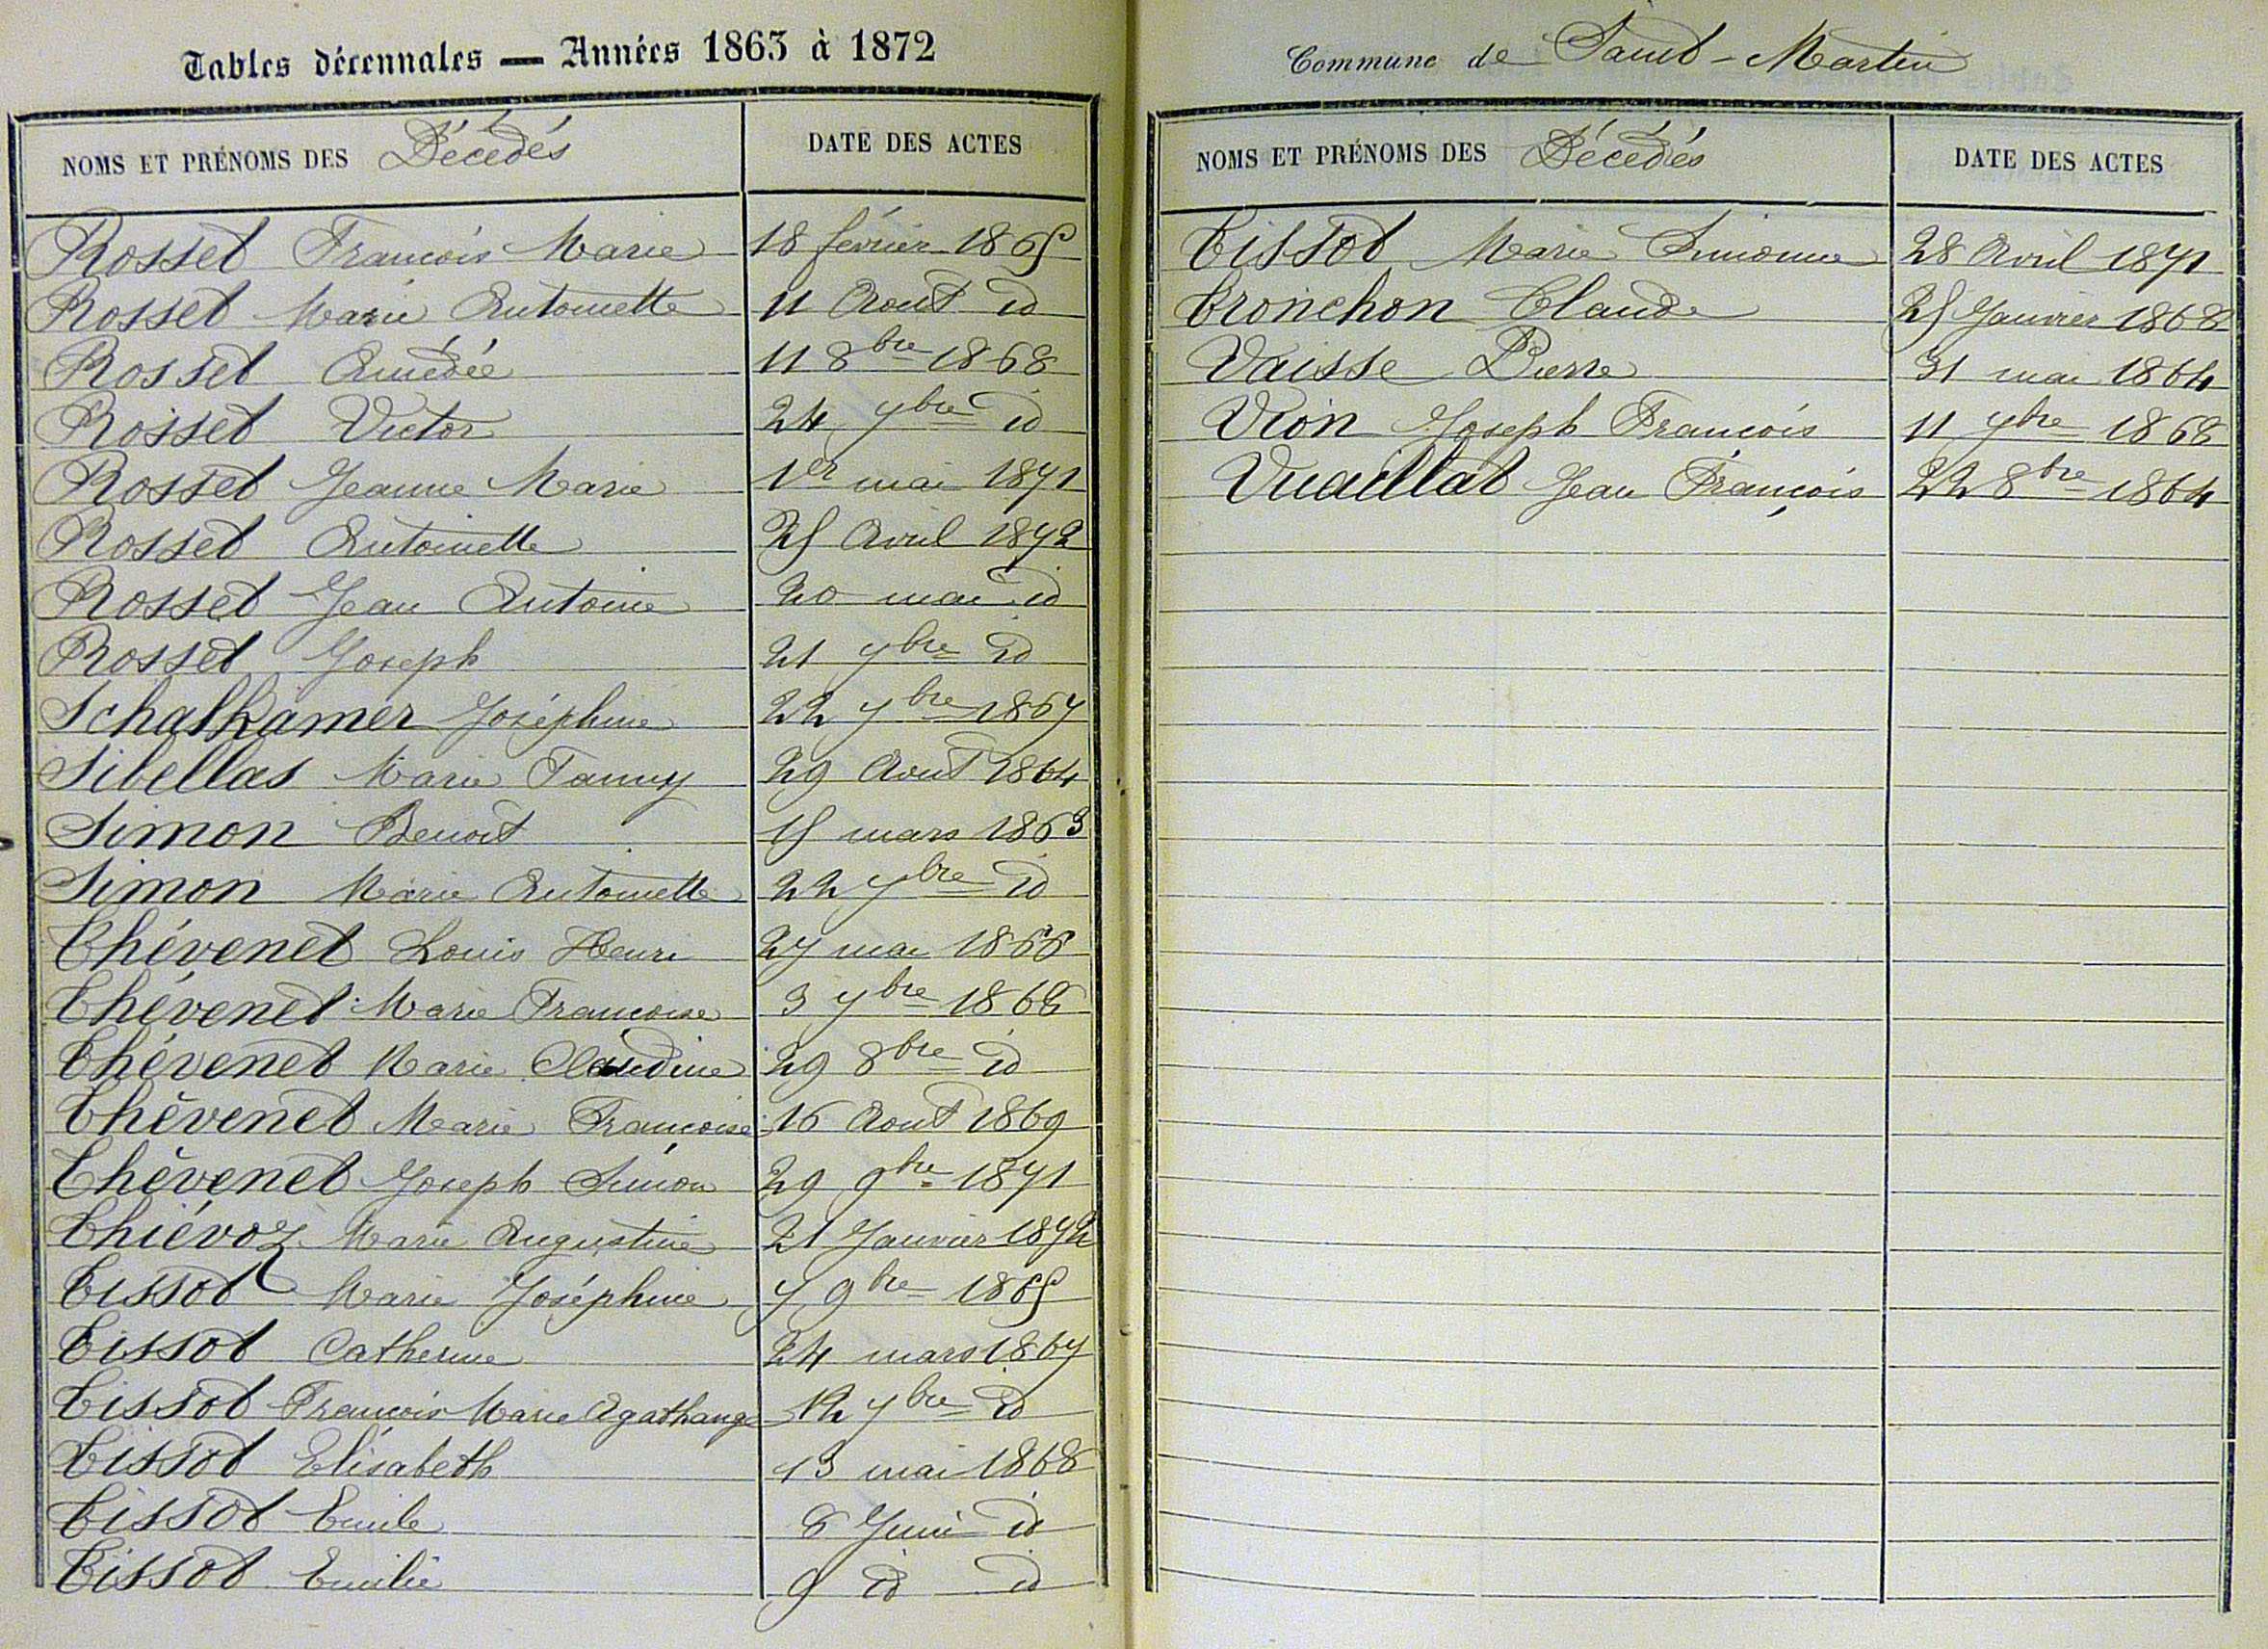 Tables décennales — Années 1863 à 1872
NOMS ET PRÉNOMS DES Décédés DATE DES ACTES
Rosset François Marie 18 février 1865
Rosset Marie Antoinette 11 Aout id
Rosset Amédée 11 8bre 1868
Rosset Victor 24 7bre id
Rosset Jeanne Marie 1er mai 1871
Rosset Antoinette 25 Avril 1872
Rosset Jean Antoine 20 mai id
Rosset Joseph 21 7bre id
Schalkamer Joséphine 22 7bre 1867
Sibellas Marie Fanny 29 Aout 1864
Simon Benoit 15 mars 1863
Simon Marie Antoinette 22 7bre id
Thévenet Louis Henri 27 mai 1866
Thévenet Marie Françoise 3 7bre 1868
Thévenet Marie Claudine 29 8bre id
Thévenet Marie Françoise 16 Aout 1869
Thévenet Joseph Simon 29 9bre 1871
Thiévoz Marie Augustine 21 Janvier 1872
Tissot Marie Joséphine 7 9bre 1865
Tissot Catherine 24 mars 1867
Tissot François Marie Agathange 12 7bre id
Tissot Elisabeth 13 mai 1868
Tissot Emile 8 Juin id
Tissot Emilie 9 id id
Commune de Saint-Martin
NOMS ET PRÉNOMS DES Décédés DATE DES ACTES
Tissot Marie Simonne 28 Avril 1871
Tronchon Claude 25 Janvier 1868
Vaisse Pierre 31 mai 1864
Vion Joseph François 11 7bre 1868
Vuaillat Jean François 22 8bre 1864